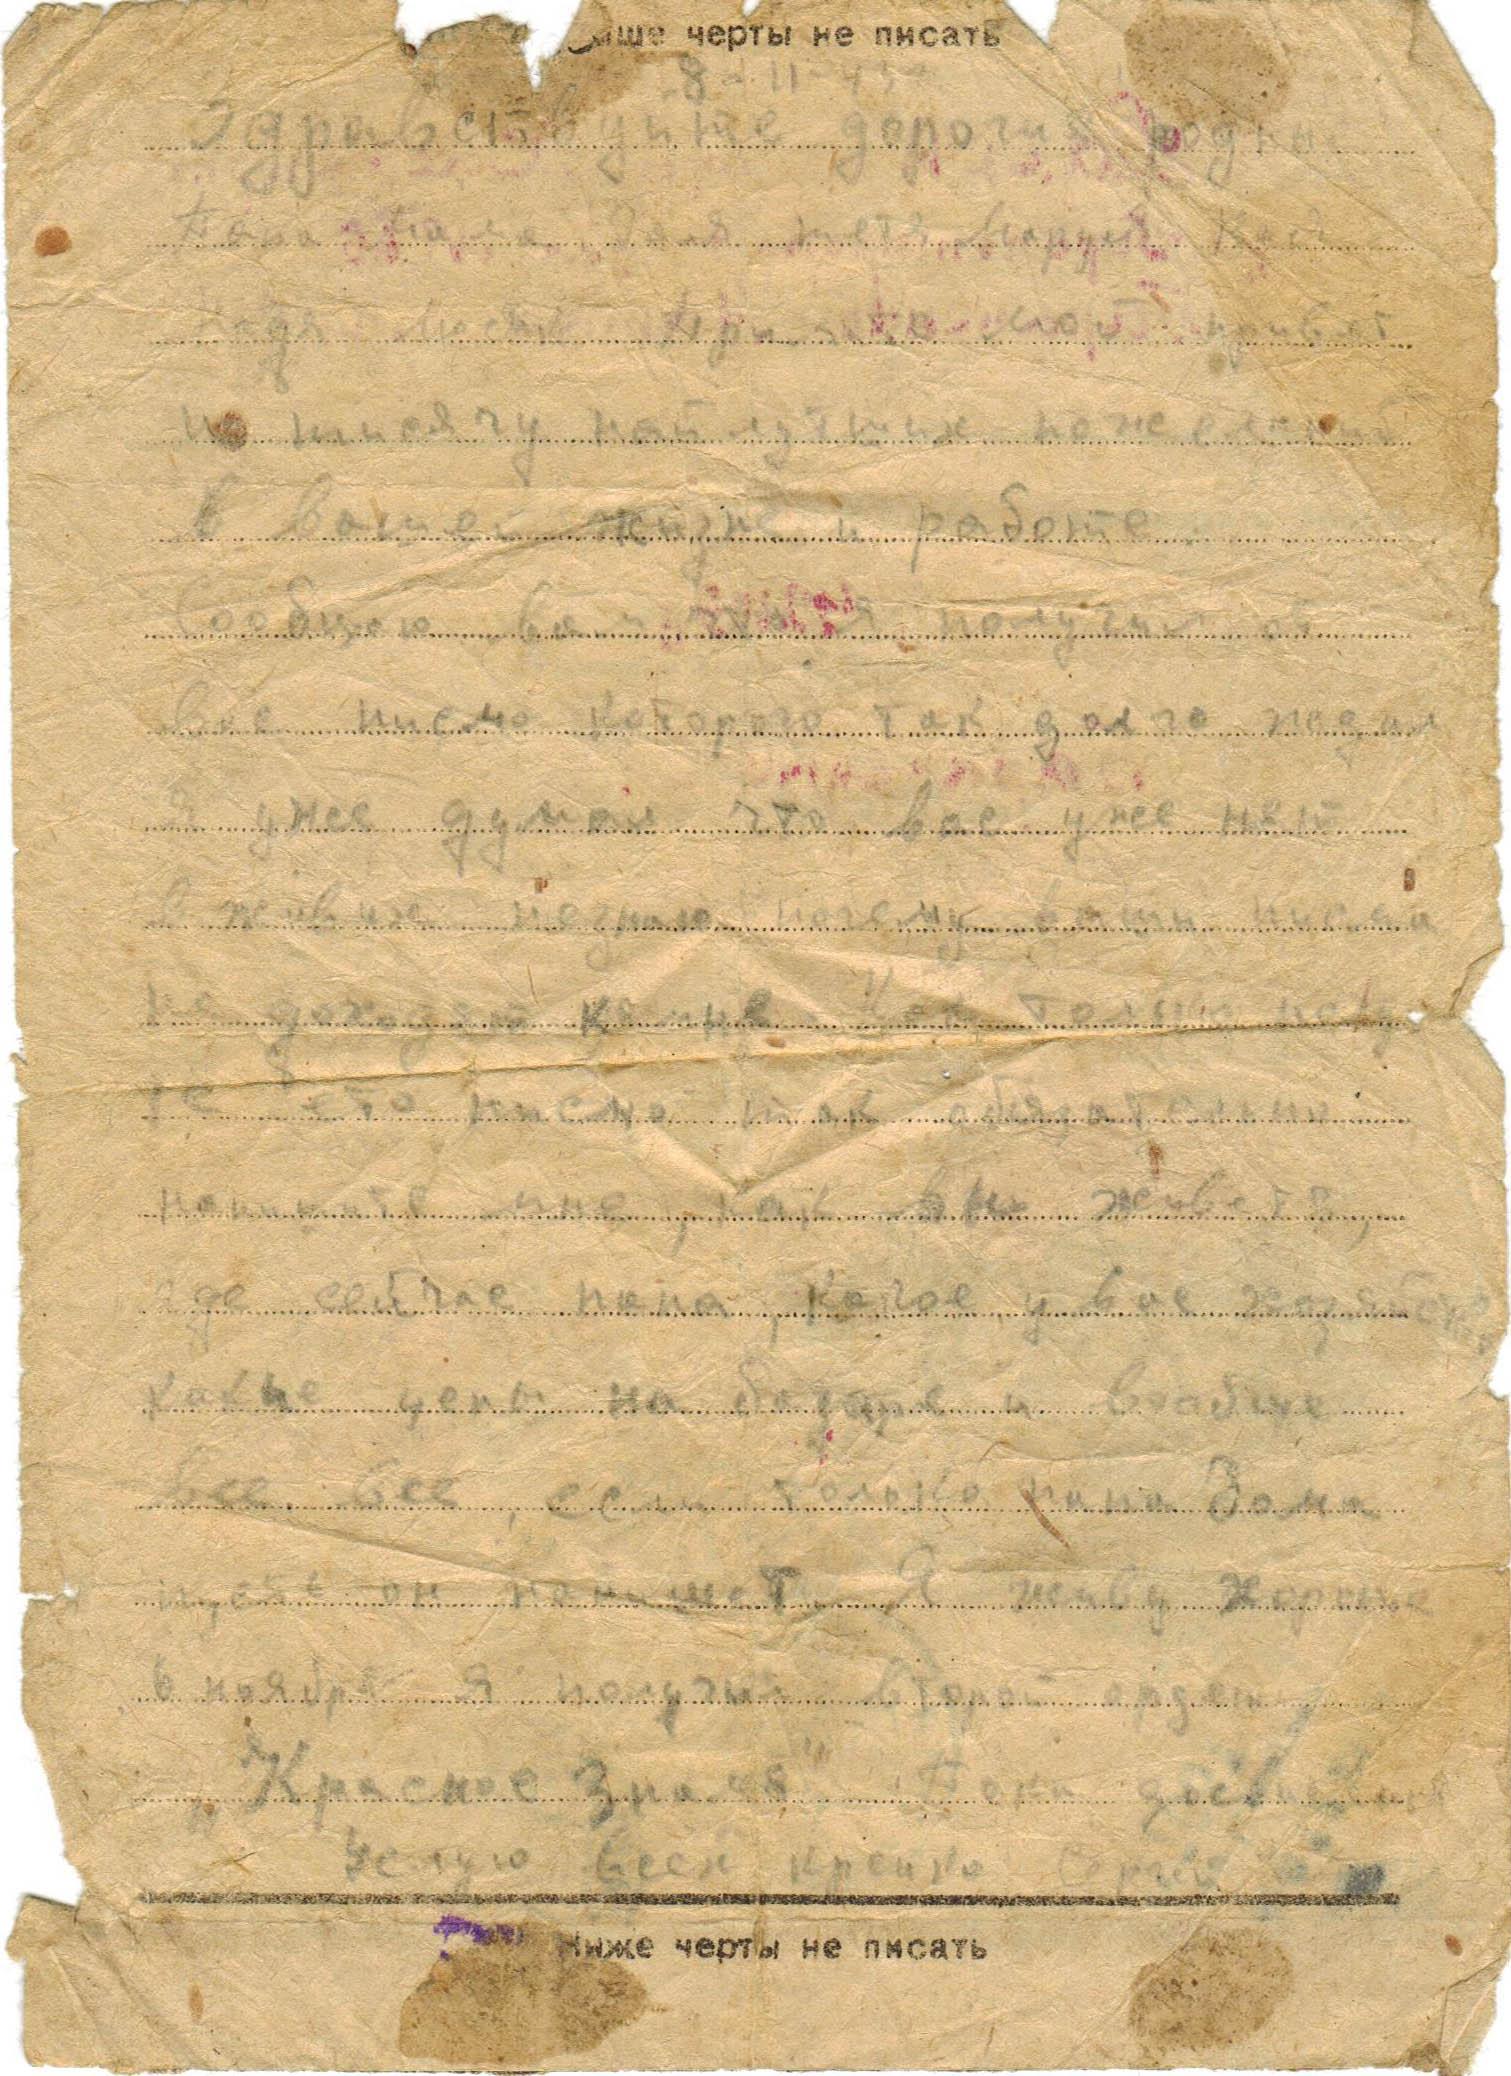 выше черты не писать
8-11-43
Здравствуйте дорогие родные
папа мама Валя тетя Маруся Катя
Надя Люся мой привет
и тысячу наилучших пожеланий
в вашей жизне и работе
Сообщаю вам что я получил от
вас писмо которого так долго ждал
Я уже думал что вас уже нет
в живых незнаю почему ваши писма
не доходят ко мне только полу
те это писмо так обязательно
напишите мне, как вы живетя,
где сейчас папа, какое у вас хозяйство,
какие цены на базаре и вообще
все все, если только папа дома
пусть он напишет. Я живу хорошо
6 ноября я получил второй орден
"Красное Знамя" Пока досвидания
Целую всех крепко
Ниже черты не писать